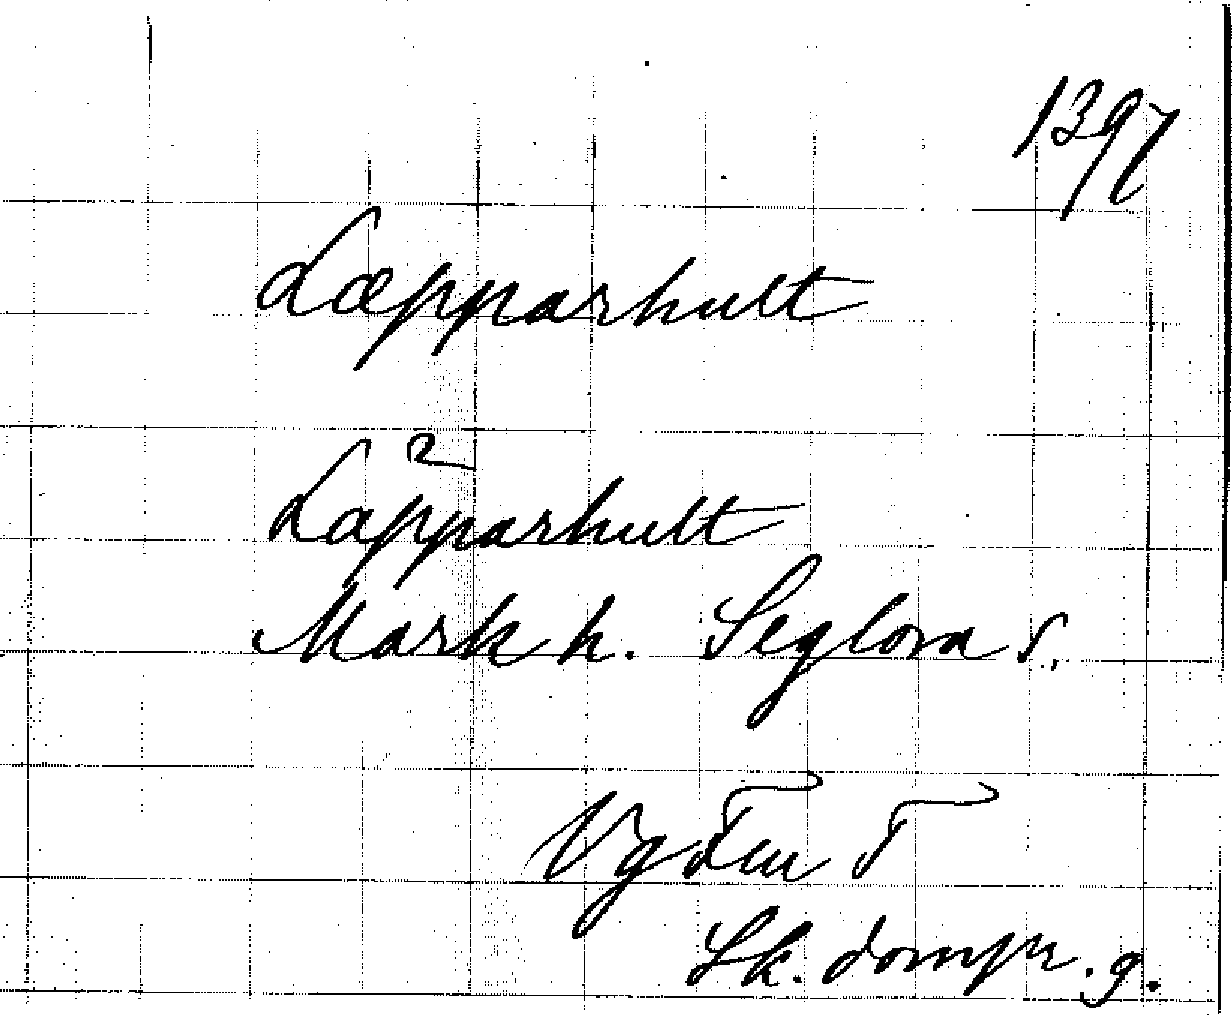 1397
Læpparhult
2
Lapparhult
Mark h. Seglora s.
Sk. dompr. g.